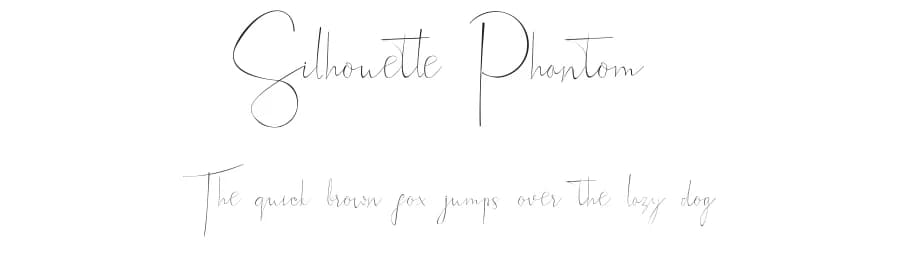 Silhouette Phantom
The quick brown fox jumps over the lazy dog